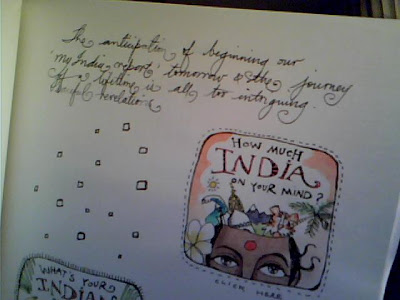 The anticipation of beginning our
'my India report' tomorrow & the journey
of a lifetime is all too intriguing.
revelation
HOW MUCH
INDIA
ON YOUR MIND?
ENTER HERE
WHAT'S YOUR
INDIAN